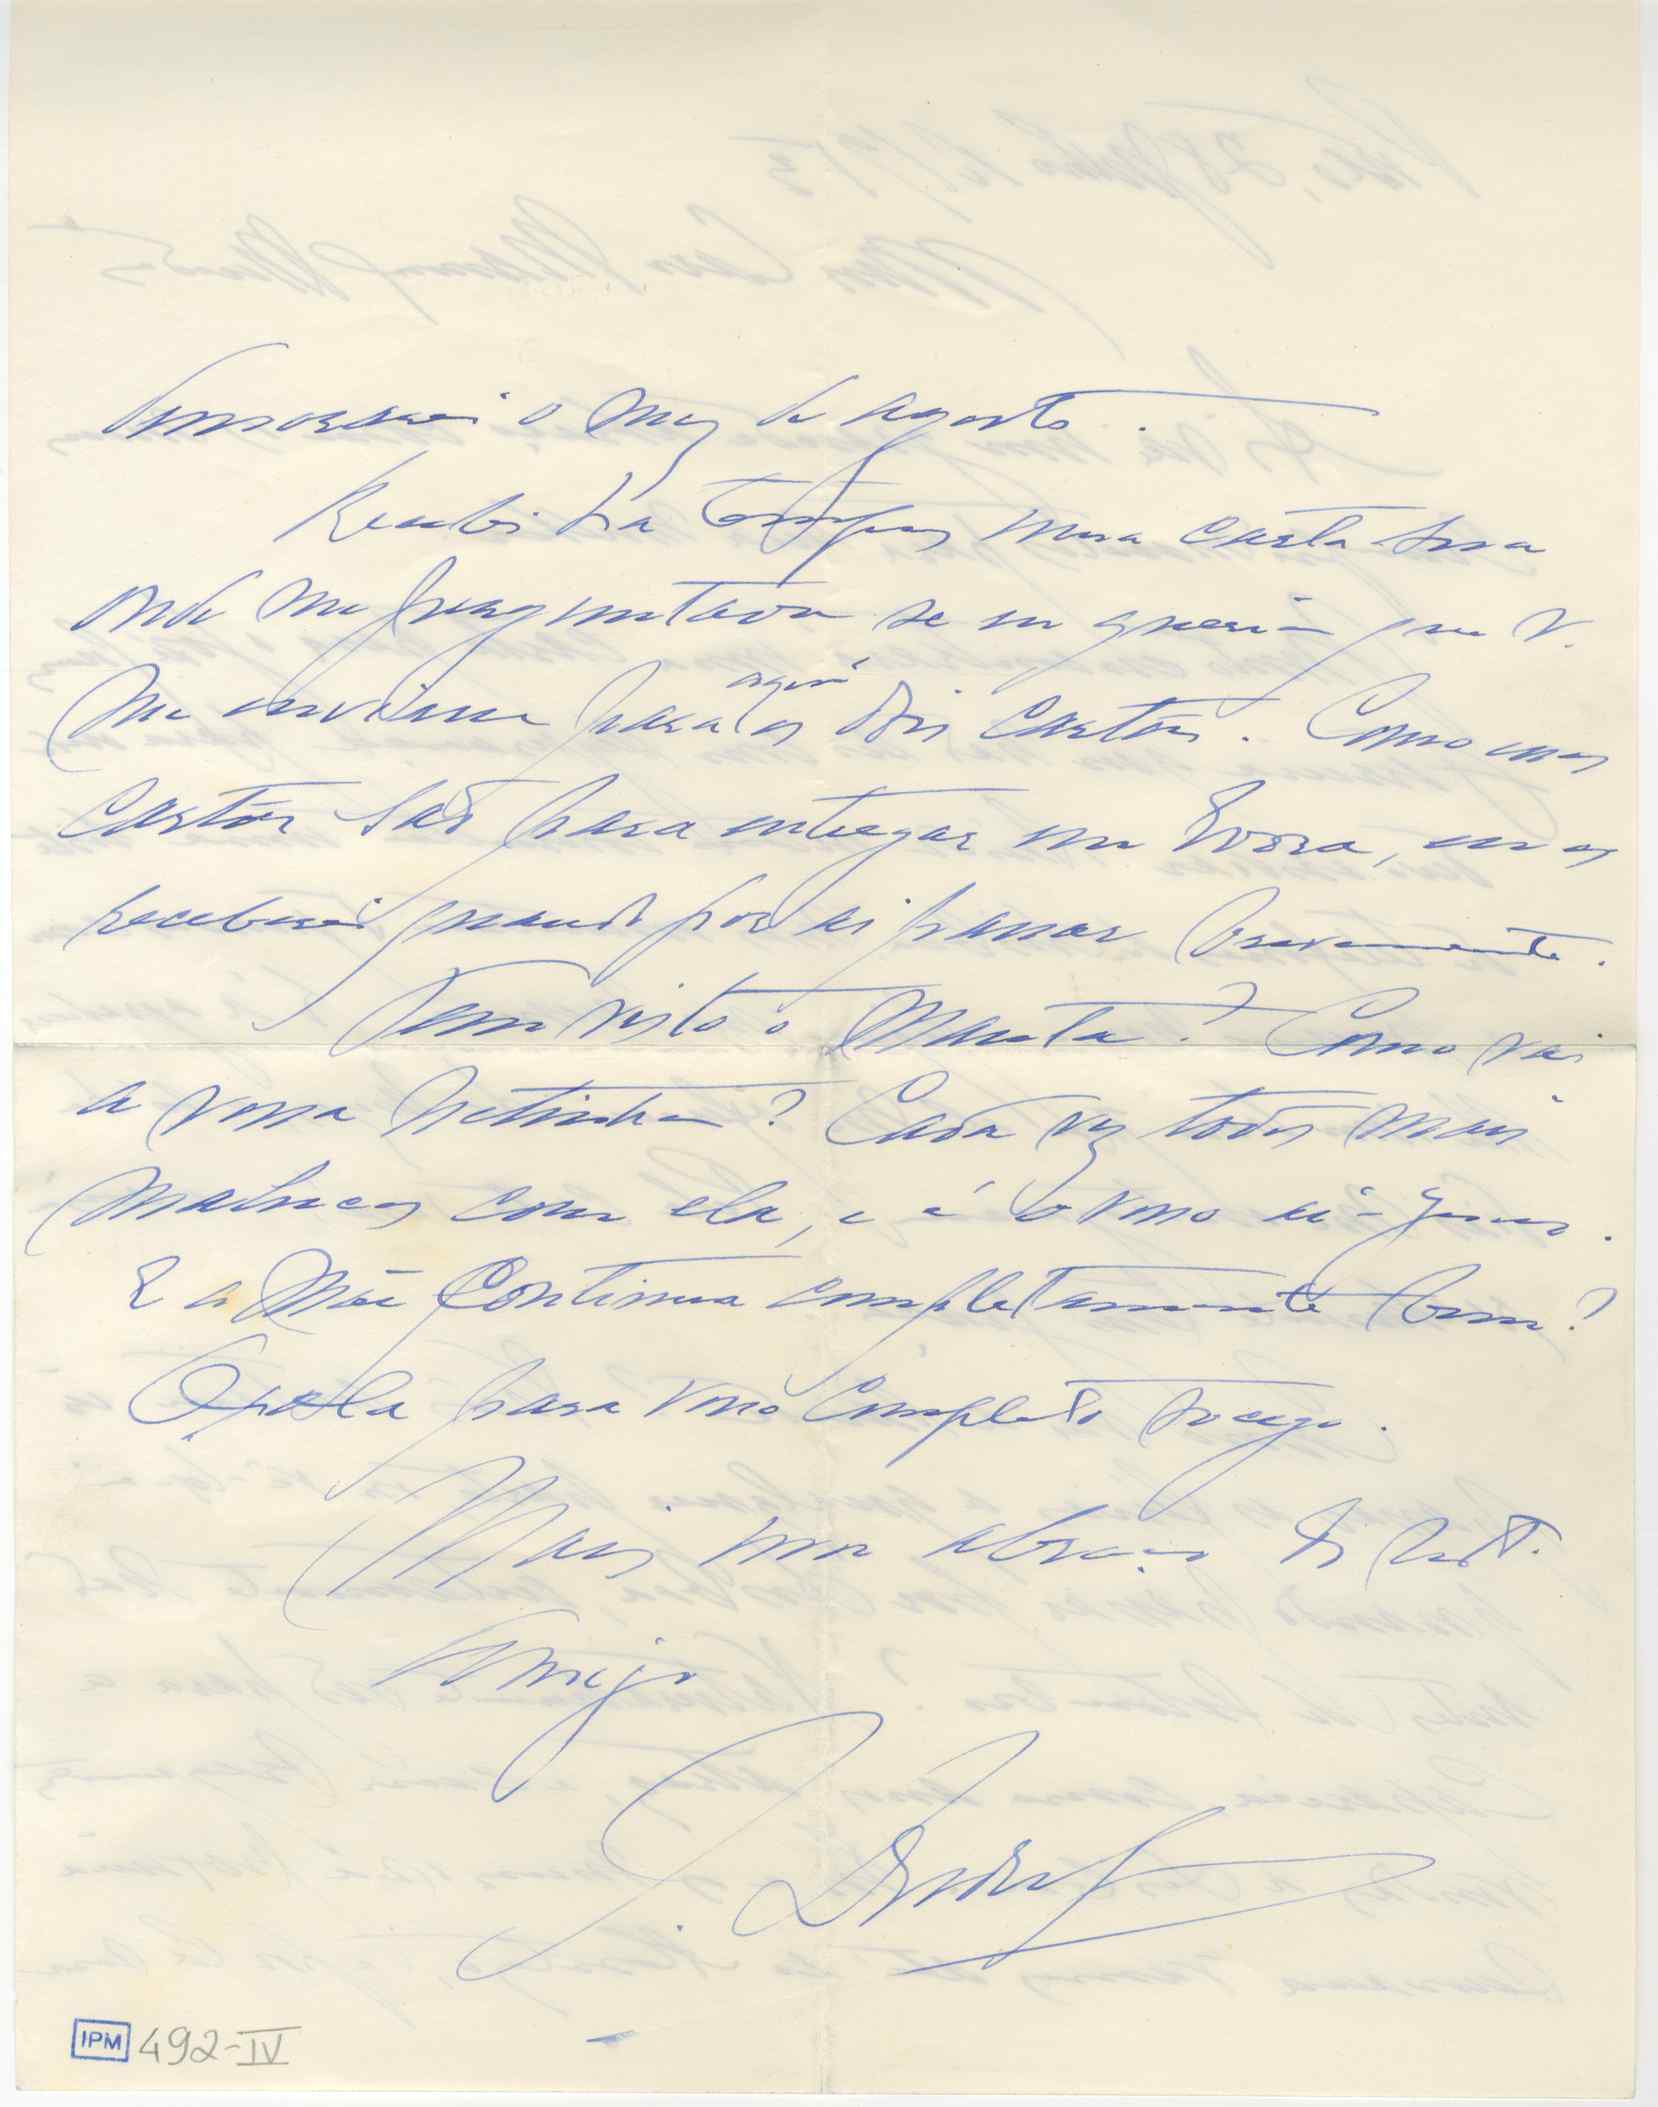 o mez de agosto.
Recebi ha tempos uma carta sua
onde me preguntava se eu queria que V.
me enviasse para aqui os dois cartões. Como esses
cartões são para entregar em Evora, eu os
receberei quando por ai passar brevemente.
Tem visto o Manta? Como vai
a vossa netinha? Cada vez todos mais
malucos com ela, e é o vosso ai-Jesus.
E a Mãe continua completamente bem?
Oxala para vosso completo socego.
Mais um abraço do dedt.
Amigo
J.
IPM 492-IV